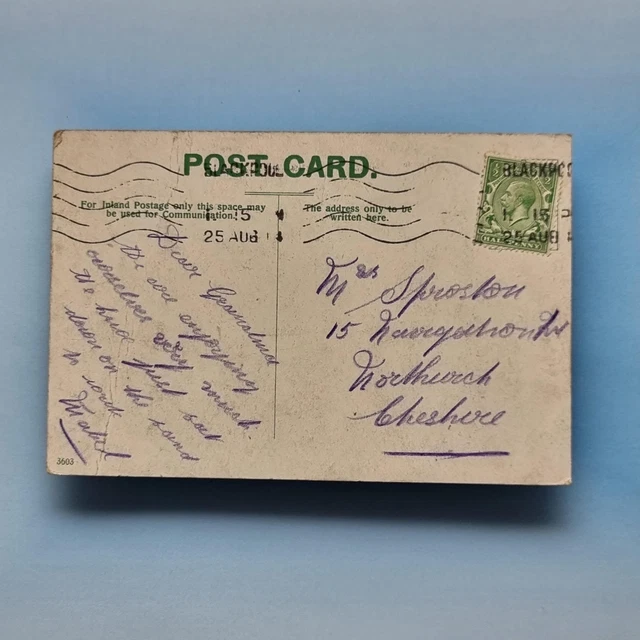 POST CARD.
BLACKPOOL
For Inland Postage only this space may
be used for Communication.
The address only to be
written here.
15
25 AUG 14
BLACKPO
15 P
25 AUG 1
Dear Grandma
We are enjoying
ourselves very much.
We have just sat
down on the sand
Mabel
Mrs Sproston
15 Navigation Rd
Northwich
Cheshire
3603